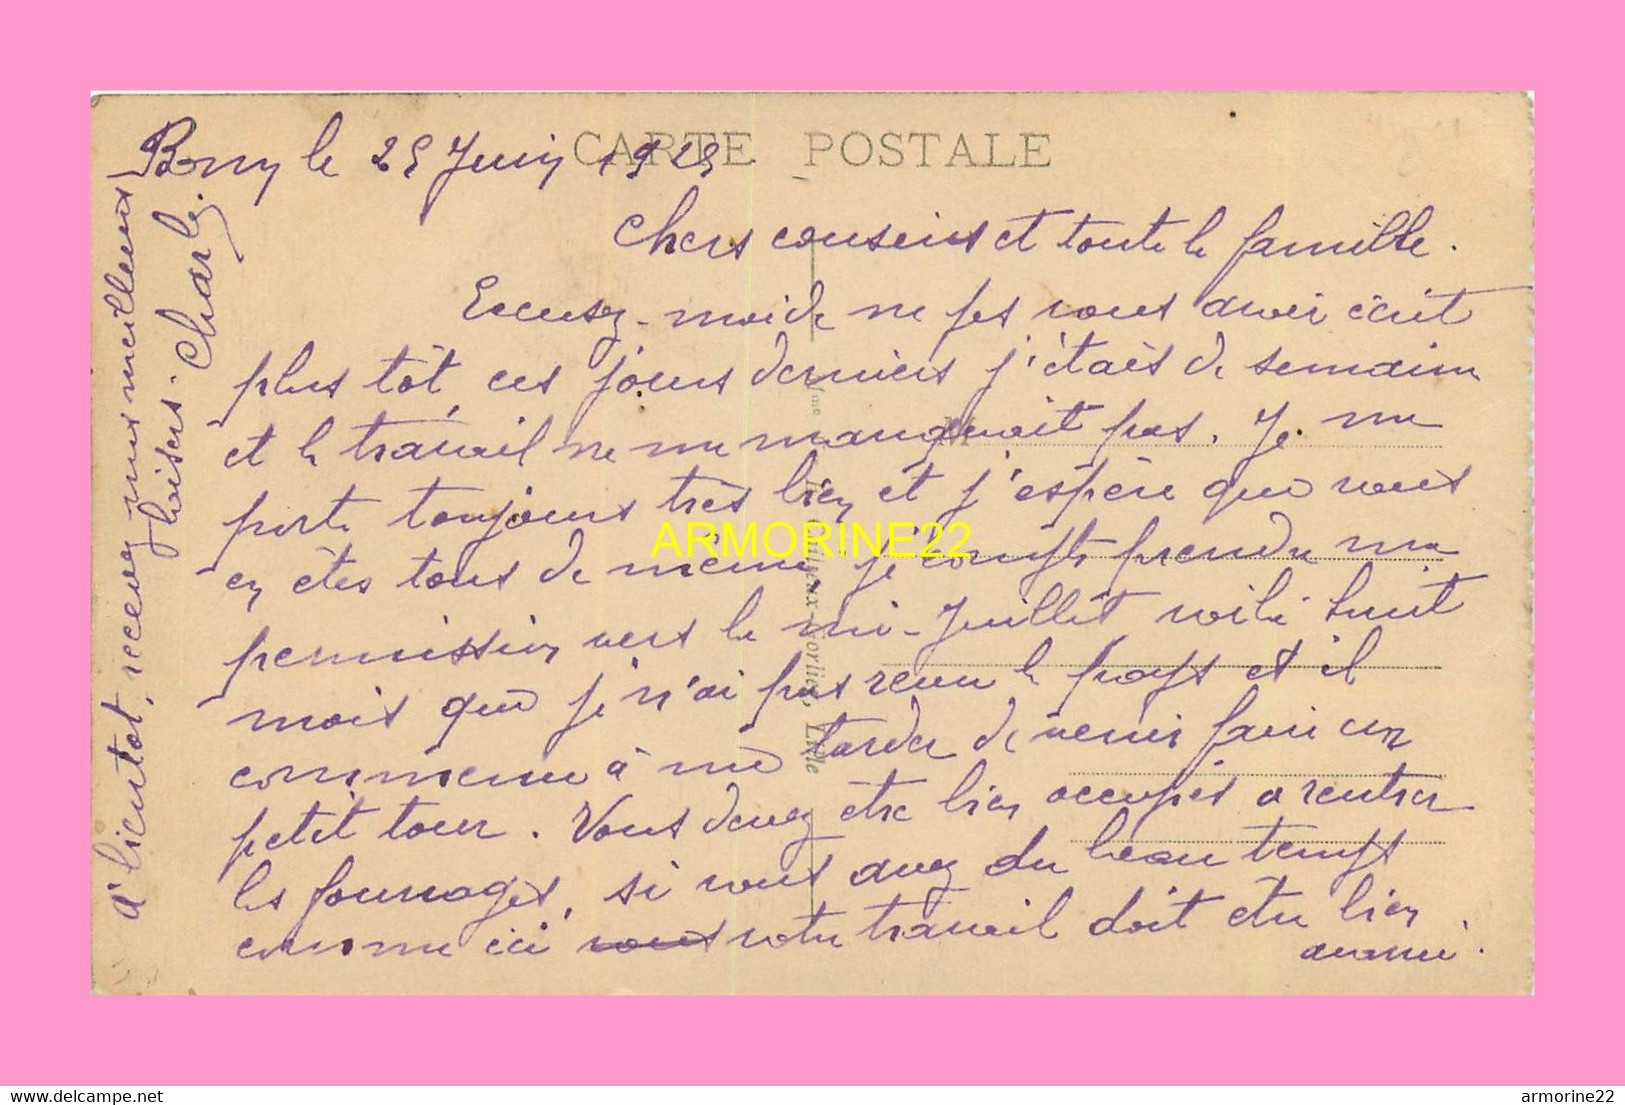 CARTE POSTALE
Bony le 25 Juin 1925
Chers cousins et toute la famille.
Excusez-moi de ne pas vous avoir écrit
plus tôt, ces jours derniers j'étais de semaine
et le travail ne me manquait pas. Je me
porte toujours très bien et j'espère que vous
en êtes tous de même, je compte prendre ma
permission vers la mi-Juillet voilà huit
mois que je n'ai pas revu le pays et il
commence à me tarder de venir faire un
petit tour. Vous devez être bien occupés a rentrer
les fourrages, si vous avez du beau temps
comme ici vous votre travail doit être bien
avancé.
A bientot, recevez mes meilleurs
baisers. Charles
Mme
Lille
ARMORINE22
www.delcampe.net
armorine22